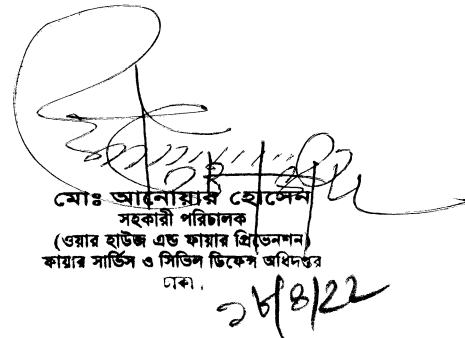 মোঃ আনোয়ার হোসেন
সহকারী পরিচালক
(ওয়ার হাউজ এন্ড ফায়ার প্রিভেনশন)
ফায়ার সার্ভিস ও সিভিল ডিফেন্স অধিদপ্তর
ঢাকা.